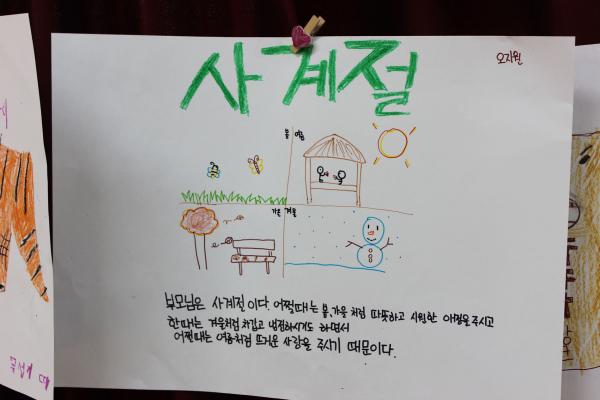 사계절
오지원
봄 여름
가을 겨울
부모님은 사계절이다. 어쩔때는 봄,가을 처럼 따뜻하고 시원한 애정을 주시고
한때는 겨울처럼 차갑고 냉정하시기도 하면서
어쩐때는 여름처럼 뜨거운 사랑을 주시기 때문이다.